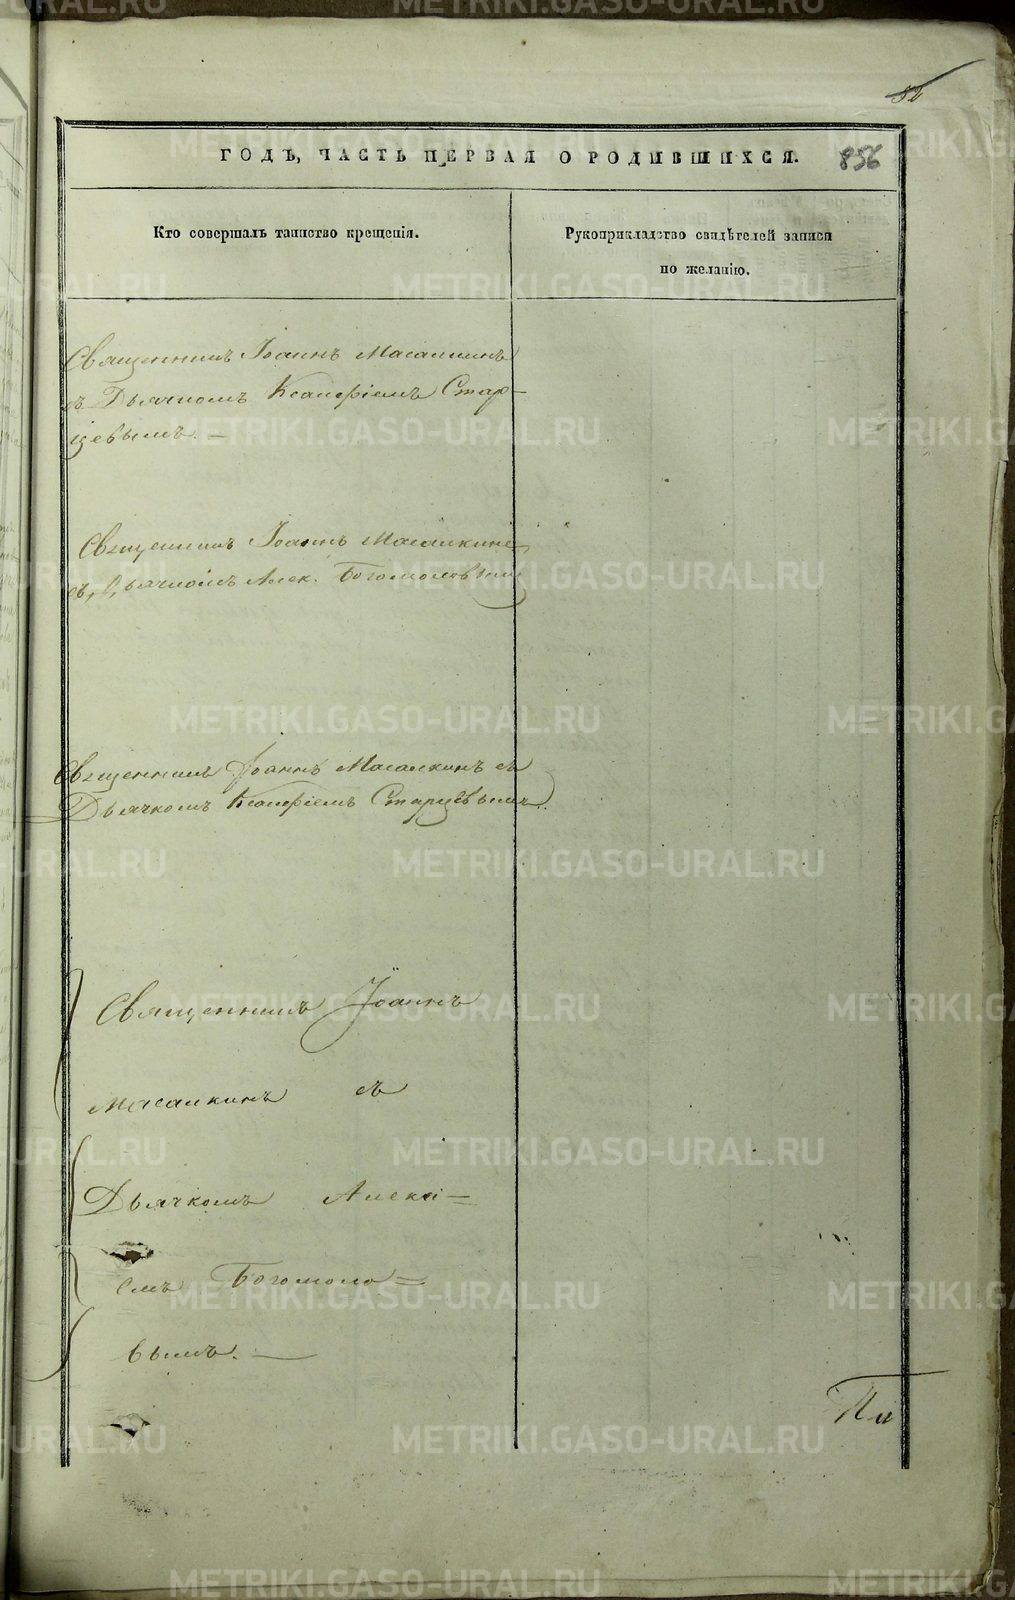 52
ГОДЪ, ЧАСТЬ ПЕРВАЯ О РОДИВШИХСЯ.
856
Кто совершалъ таинство крещенія.
Рукоприкладство свидѣтелей записи
по желанію.
Священникъ Іоаннъ Масалкинъ
съ Дьячкомъ Ксанфіемъ Стар-
цевымъ. —
Священникъ Іоаннъ Масалкинъ
съ Дьячкомъ Алек. Богомоловымъ
Священникъ Іоаннъ Масалкинъ съ
Дьячкомъ Ксанфіемъ Старцевымъ.
Священникъ Іоаннъ
Масалкинъ съ
Дьячкомъ Алексі=
емъ Богомоло=
вымъ. —
METRIKI.GASO-URAL.RU